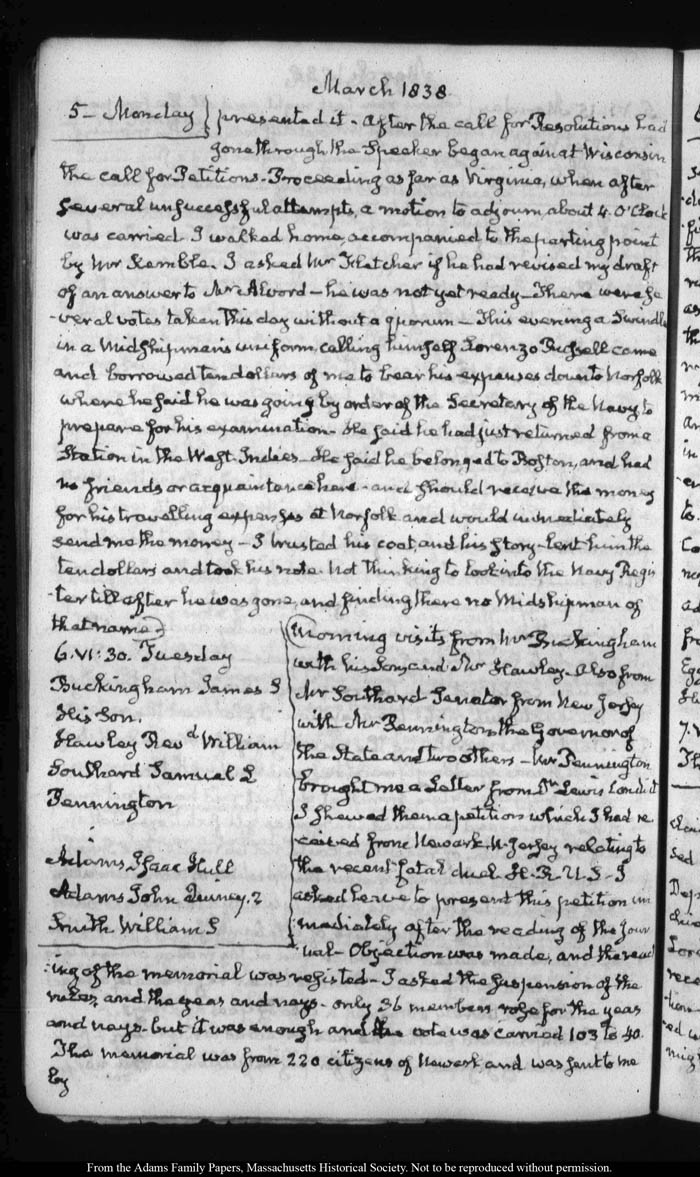 March 1838.
5 – Monday } presented it – After the call for Resolutions had
gone through the Speaker began again at Wisconsin
the call for Petitions – Proceeding as far as Virginia, when after
several unsuccessful attempts, a motion to adjourn, about 4. O'Clock
was carried. I walked home, accompanied to the parting point
by Mr Kemble. I asked Mr Fletcher if he had revised my draft
of an answer to Mr Alvord – he was not yet ready – There were se
-veral votes taken this day without a quorum – This evening a Swindler
in a Midshipman's uniform, calling himself Lorenzo Russell came
and borrowed ten dollars of me to bear his expenses down to Norfolk
where he said he was going by order of the Secretary of the Navy to
prepare for his examination – He said he had just returned from a
Station in the West-Indies – He said he belonged to Boston, and had
no friends or acquaintance here – and should receive the money
for his travelling expenses at Norfolk and would immediately
send me the money – I trusted his coat, and his story – lent him the
ten dollars and took his note. Not thinking to look into the Navy Regis
-ter till after he was gone, and finding there no Midshipman of
that name.
6. VI:30. Tuesday
Buckingham James S
His Son.
Hawley Revd William
Southard Samuel L
Pennington
:
Adams Isaac Hull
Adams John Quincy. 2
Smith William S
Morning visits from Mr Buckingham
with his Son, and Mr Hawley – Also from
Mr Southard Senator from New Jersey
with Mr Pennington the Governor of
the State and two others – Mr Pennington
brought me a Letter from Dr Lewis Condict
I shewed them a petition which I had re
ceived from Newark N. Jersey relating to
the recent fatal duel. H. R. U. S – I
asked leave to present this petition im
mediately after the reading of the Jour
nal – Objection was made, and the read
:ing of the memorial was resisted – I asked the suspension of the
rules, and the yeas and nays – only 36 members rose for the yeas
and nays – but it was enough and the vote was carried 103 to 40.
The memorial was from 220 citizens of Newark and was sent to me
by
From the Adams Family Papers, Massachusetts Historical Society. Not to be reproduced without permission.